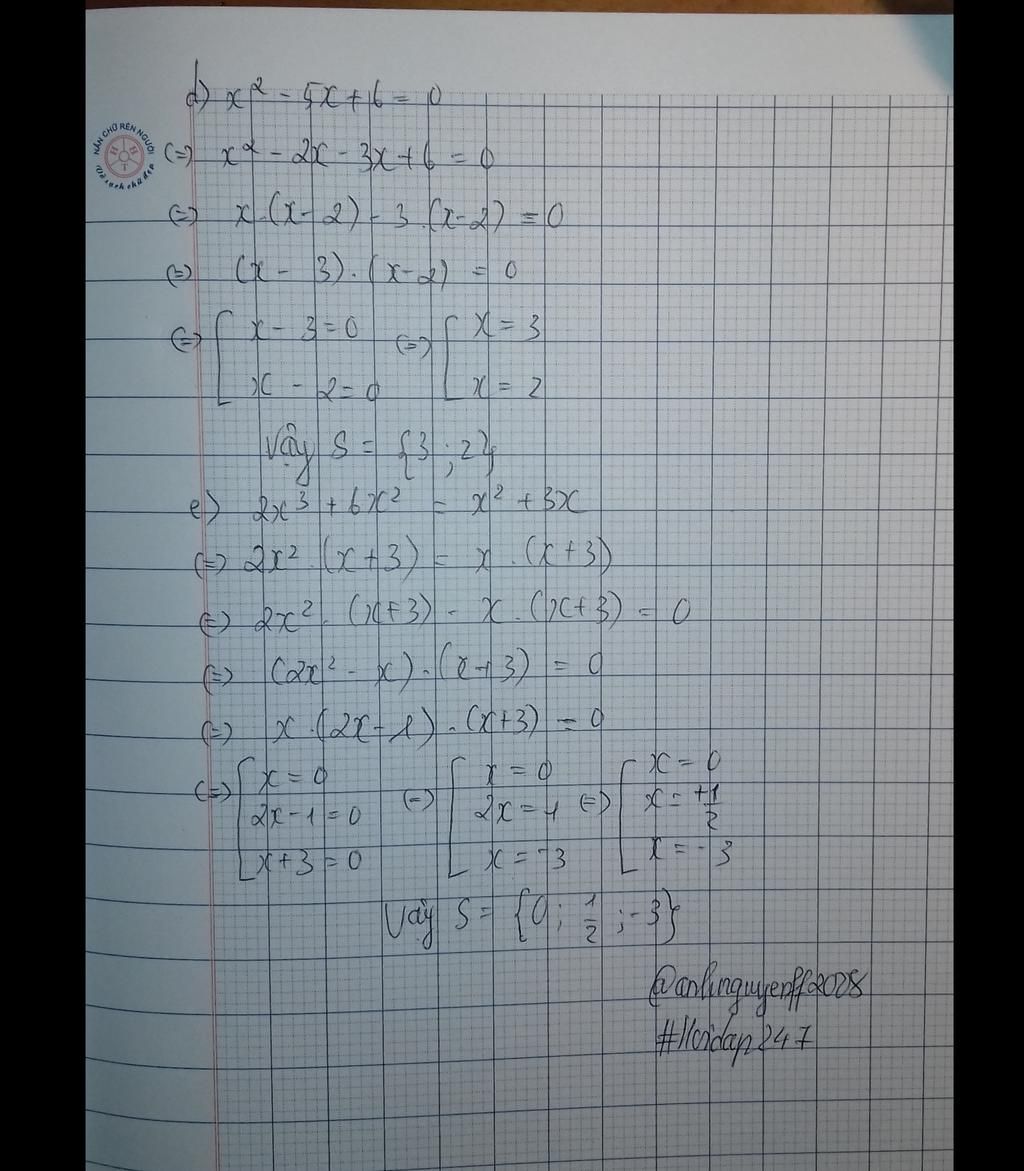 NẮN CHỮ RÈN NGƯỜI
H H T
Vở sạch chữ đẹp
d) x² - 5x + 6 = 0
(=) x² - 2x - 3x + 6 = 0
(=) x.(x - 2) - 3.(x - 2) = 0
(=) (x - 3).(x - 2) = 0
(=) [ x - 3 = 0 (=) [ x = 3
x - 2 = 0 x = 2
Vậy S = {3 ; 2}
e) 2x³ + 6x² = x² + 3x
(=) 2x².(x + 3) = x.(x + 3)
(=) 2x².(x + 3) - x.(x + 3) = 0
(=) (2x² - x).(x + 3) = 0
(=) x.(2x - 1).(x + 3) = 0
(=) [ x = 0 (=) [ x = 0 (=) [ x = 0
2x - 1 = 0 2x = 1 x = +1/2
x + 3 = 0 x = -3 x = -3
Vậy S = {0 ; 1/2 ; -3}
@anhnguyenff2008
#Hoidap247